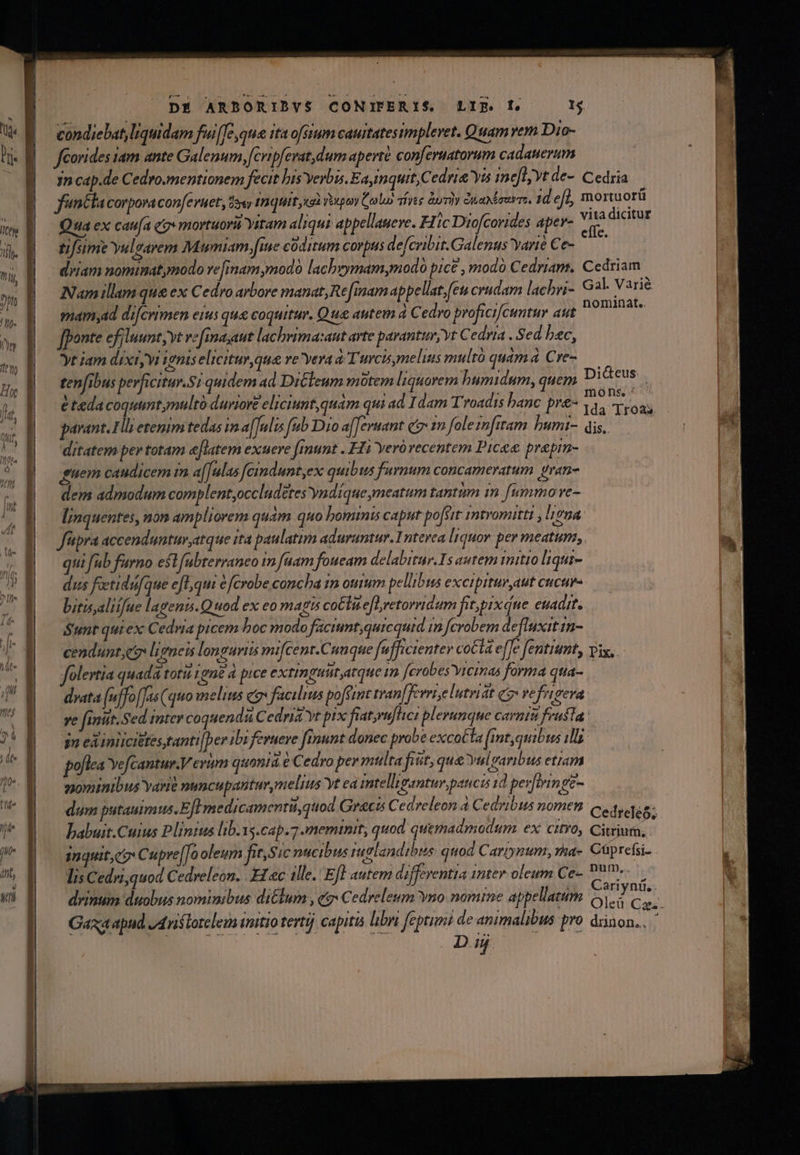 DE ARBORIBVS CONIFERIS. LIB. I. 15
condiebat, liquidam fuisse, quæ ita ossium cauitates impleret. Quam rem Dio-
scorides iam ante Galenum, scripserat, dum apertè conseruatorum cadauerum
in cap. de Cedro. mentionem fecit his verbis. Ea, inquit, Cedriæ vis inest, vt de-
functa corpora conseruet, inquit, id est,
Qua ex causa & mortuorũ vitam aliqui appellauere. Hic Dioscorides aper-
tissime vulgarem Mumiam, siue cõditum corpus describit. Galenus variè Ce-
driam nominat, modo resinam, modò lachrymam, modò picẽ, modò Cedriam.
Nam illam quæ ex Cedro arbore manat, Resinam appellat, seu crudam lachri-
mam, ad discrimen eius quæ coquitur. Quæ autem à Cedro proficiscuntur aut
sponte effluunt, vt resina, aut lachrima: aut arte parantur, vt Cedria. Sed hæc,
vt iam dixi, vi ignis elicitur, quæ re vera à Turcis, melius multò quàm à Cre-
tensibus perficitur. Si quidem ad Dicteum mõtem liquorem humidum, quem
è tæda coquunt, multò duriorẽ eliciunt, quàm qui ad Idam Troadis hanc præ-
parant. Illi etenim tedas in assulis sub Dio asseruant & in sole insitam humi-
ditatem per totam æstatem exuere sinunt. Hi verò recentem Piceæ præpin-
guem caudicem in assulas scindunt, ex quibus furnum concameratum gran-
dem admodum complent, occludẽtes vndique, meatum tantum in summo re-
linquentes, non ampliorem quàm quo hominis caput possit intromitti, ligna
supra accenduntur, atque ita paulatim aduruntur. Interea liquor per meatum,
qui sub furno est subterraneo in suam foueam delabitur. Is autem initio liqui-
dus fœtidúsque est, qui è scrobe concha in ouium pellibus excipitur, aut cucur-
bitis, aliisue lagenis. Quod ex eo magis coctũ est, retorridum fit, pixque euadit.
Sunt qui ex Cedria picem hoc modo faciunt, quicquid in scrobem defluxit in-
cendunt, & ligneis longuriis miscent. Cunque sufficienter coctã esse sentiunt,
solertia quadã totũ ignẽ à pice extinguũt, atque in scrobes vicinas forma qua-
drata suffossas (quo melius & facilius possint transferri, elutriãt & refrigera
re sinũt. Sed inter coquendũ Cedriã vt pix fiat, rustici plerunque carnis frusta
in eã iniiciẽtes, tantisper ibi feruere sinunt donec probè excocta sint, quibus illi
postea vescantur. Verùm quoniã è Cedro per multa fiũt, quæ vulgaribus etiam
nominibus variè nuncupantur, melius vt ea intelligantur, paucis id perstringẽ-
dum putauimus. Est medicamentũ, quod Græcis Cedreleon à Cedribus nomen
habuit. Cuius Plinius lib. 15. cap. 7. meminit, quod quemadmodum ex citro,
inquit, & Cupresso oleum fit, Sic nucibus iuglandibus quod Cariynum, ma-
lis Cedri, quod Cedreleon. Hæc ille. Est autem differentia inter oleum Ce-
drinum duobus nominibus dictum, & Cedreleum vno nomine appellatum
Gaza apud Aristotelem initio tertij capitis libri septimi de animalibus pro
D iij
Cedria
mortuorũ
vita dicitur
esse.
Cedriam
Gal. variè
nominat.
Dicteus
mons.
Ida Troas
dis.
Pix.
Cedreleõ;
Citrium.
Cũpressi-
num.
Cariynũ.
Oleũ Cæ-
drinon.